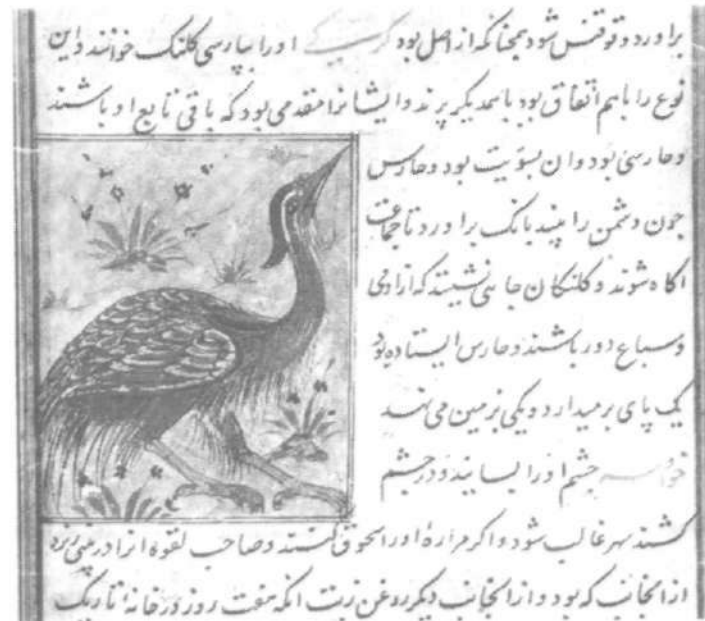 براورد و ققنس شود همچنانکه از اصل بود کرکی اورا بپارسی کلنک خوانند و این
نوع را باهم اتفاق بود با همدیکر پرند و ایشانرا مقدمی بود که باقی تابع او باشند
و حارسی بود و ان بسویت بود و حارس
جون دشمن را بیند بانک براورد تا جماعت
اکاه شوند و کلنکان جایی نشینند که از ادمی
و سباع دور باشند و حارس ایستاده بود
یک پای برمیدارد و یکی بزمین می نهد
چشم اورا بسایند و در چشم
کشند سهر غالب شود و اکر مراره اورا کنند و صاحب لقوه انرا در بینی ریزد
از انجانب که بود و از انجانب دیکر روغن زیت انکه هفت روز در خانه تاریک